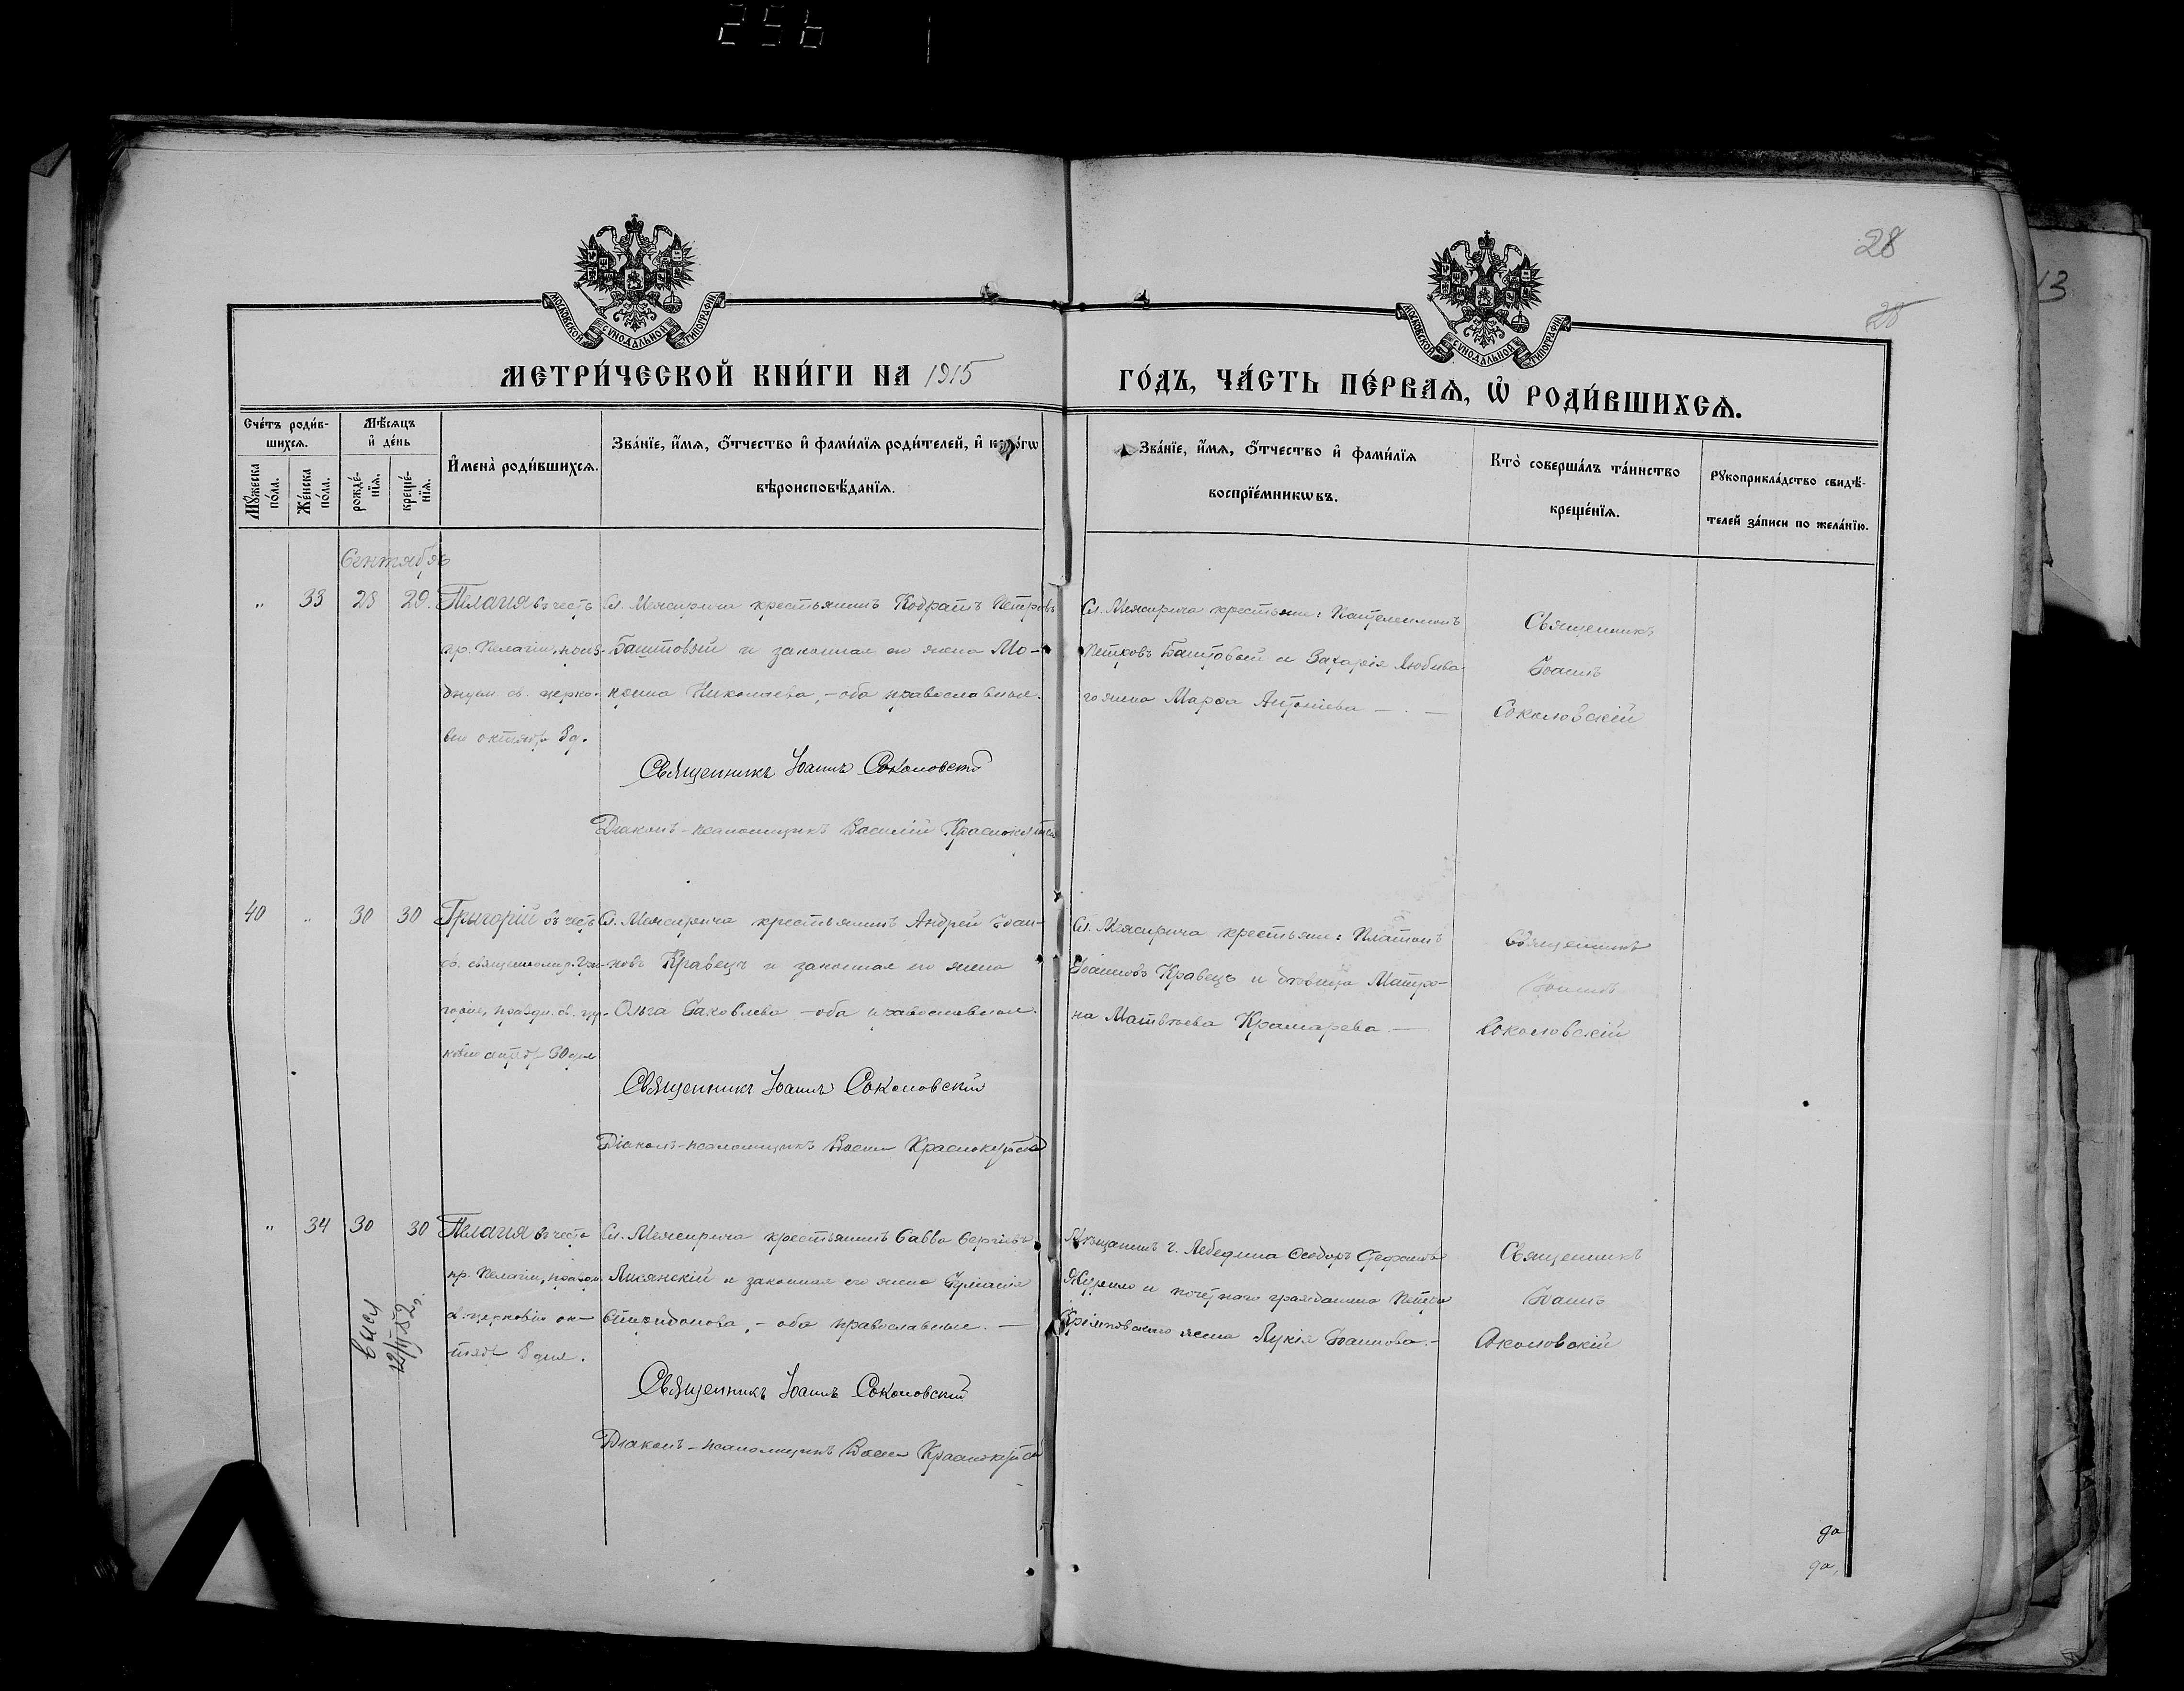 256
28
28
13
МОСКОВСКОЙ СѴНОДАЛЬНОЙ ТИПОГРАФІИ
МОСКОВСКОЙ СѴНОДАЛЬНОЙ ТИПОГРАФІИ
МЕТРИ́ЧЕСКОЙ КНИ́ГИ НА 1915
ГО́ДЪ, ЧА́СТЬ ПЕ́РВАѦ, Ѡ҆ РОДИ́ВШИХСѦ.
Сче́тъ роди́в-
шихсѧ.
Мѣ́сѧцъ
и҆ де́нь
Мꙋ́жеска
по́ла.
Же́нска
по́ла.
рожде́-
нїѧ.
креще́-
нїѧ.
И҆мена̀ роди́вшихсѧ.
Зва́нїе, и҆́мѧ, ѻ҆́тчество и҆ фами́лїѧ роди́телей, и҆
вѣроисповѣ́данїѧ.
Зва́нїе, и҆́мѧ, ѻ҆́тчество и҆ фами́лїѧ
воспрїе́мникѡвъ.
Кто̀ соверша́лъ та́инство
креще́нїѧ.
Рꙋкоприкла́дство свидѣ́-
телей за́писи по жела́нїю.
Сентябрь
" 33 28 29.
Пелагия въ честь
пр. Пелагіи,
св. церко-
вью октябр 8 д.
Сл. Межирича крестьянинъ Кодратъ Петровъ
Баштовый и законная его жена Мо-
Николаева, - оба православные.
Священникъ Іоаннъ Соколовскій
Діаконъ-псаломщикъ Василій
Сл. Межирича крестьяне: Пантелеимонъ
Петровъ Баштовый и Захарія Любива-
го жена Марфа Антоніева — . —
Священникъ
Іоаннъ
Соколовскій
40 " 30 30
Григорій въ честь
св. священномр. Гри-
горія, праздн. св. цер-
ковью 30 дня
Сл. Межирича крестьянинъ Андрей Іоан-
новъ Кравецъ и законная его жена
Ольга Іаковлева - оба православные.
Священникъ Іоаннъ Соколовскій
Діаконъ-псаломщикъ Васил
Сл. Межирича крестьяне: Платонъ
Іоанновъ Кравецъ и дѣвица Матро-
на Матвѣева Крамарева. —
Священникъ
Іоаннъ
Соколовскій
" 34 30 30
Пелагия въ честь
пр. Пелагіи, праздн.
св. церковью ок-
тябр 8 дня.
Сл. Межирича крестьянинъ Савва Сергіевъ
и законная его жена Іуліанія
Спиридонова, - оба православные. —
Священникъ Іоаннъ Соколовскій
Діаконъ-псаломщикъ Васил
Мѣщанинъ г. Лебедина Ѳеодоръ
и почетнаго гражданина Петра
жена Лукія Іоаннова. -
Священникъ
Іоаннъ
Соколовскій
да
да,